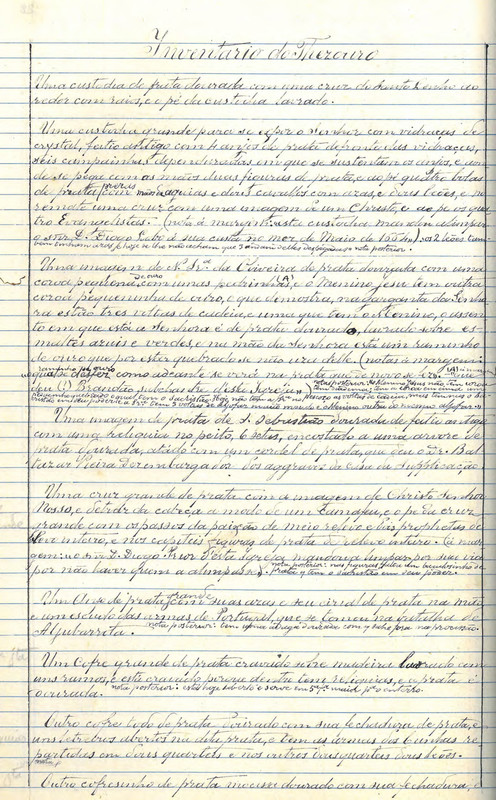 Inventario do Thezouro
Uma custodia de prata dourada com uma cruz do Santo Lenho ao
redor com raios, e o pé da custodia lavrado.
Uma custodia grande para se expor o Senhor com vidraças de
crystal, feitio antigo com 4 anjos de prata defronte das vidraças,
seis campainhas dependuradas em que se sustentam os anjos, e on-
de se pegue com as mãos duas figuras de prata, e ao pé quatro bolas
de prata com mais aguias e dois cavallos com azas, e dois leões, e por
remate uma cruz com uma imagem de um Christo, e ao pé os qua-
tro Evangelistas. (nota á margem: esta custodia mandou alimpar
o snr. D. Diogo Lobo á sua custa no mez de Maio de os 2 leões tam-
bem e hoje se lhe não acham que
Uma imagem de N. Snr.ª da Oliveira de prata dourada com uma
coroa pequena com umas pedrinhas, e o Menino Jesu tem outra
coroa pequenina de ouro, e que demostra, na garganta da Senho-
ra estão tres voltas de cadeia, e uma que tem o Menino, e o assen-
to em que está a Senhora é de prata dourado, lavrado sobre es-
maltes azuis e verdes, e na mão da Senhora está um raminho
de ouro que por estar quebrado se não uza delle. (notas á margem:
como adeante se verá na prata que de novo se fez.
deu Brandão, subchantre desta Igreja
Uma imagem de prata de S. Sebastião dourada de feitio antigo
com uma reliquia no peito, 6 setas, encostado a uma arvore de
prata dourada, atado com um cordel de prata, que deu o Dr. Bal-
tazar Vieira Dezembargador dos aggravos da Casa da Supplicação.
Uma cruz grande de prata com a imagem de Christo Senhor
Nosso, e detraz da cabeça a modo de um e o pé da cruz
grande com os passos da paixão de meio relevo e os prophetas de
relevo inteiro, e nos capiteis figuras de prata de relevo inteiro. (á mar-
gem: o snr. D. Diogo Prior desta Igreja mandou-a limpar por sua via
por não haver quem a alimpasse). nota posterior: nas figuras falta
prata e tem o sacristão em seu poder.
Um Anjo de prata grande com suas azas e seu cirial de prata na mão
e um escudo das armas de Portugal, que se tomou na batalha de
Aljubarrota. nota posterior: tem uma
Um Cofre grande de prata cravado sobre madeira lavrado com
uns ramos, e está cravado porque dentro tem reliquias, e a prata é
dourada. nota posterior: está hoje aberto e serve em
Outro cofre todo de prata dourado com sua fechadura de prata, e
uns letreiros abertos na dita prata, e tem as armas dos Cunhas re-
partidas em dois quarteis e nos outros dois quarteis dous leões.
Outro cofresinho de prata mocisso dourado com sua fechadura, e